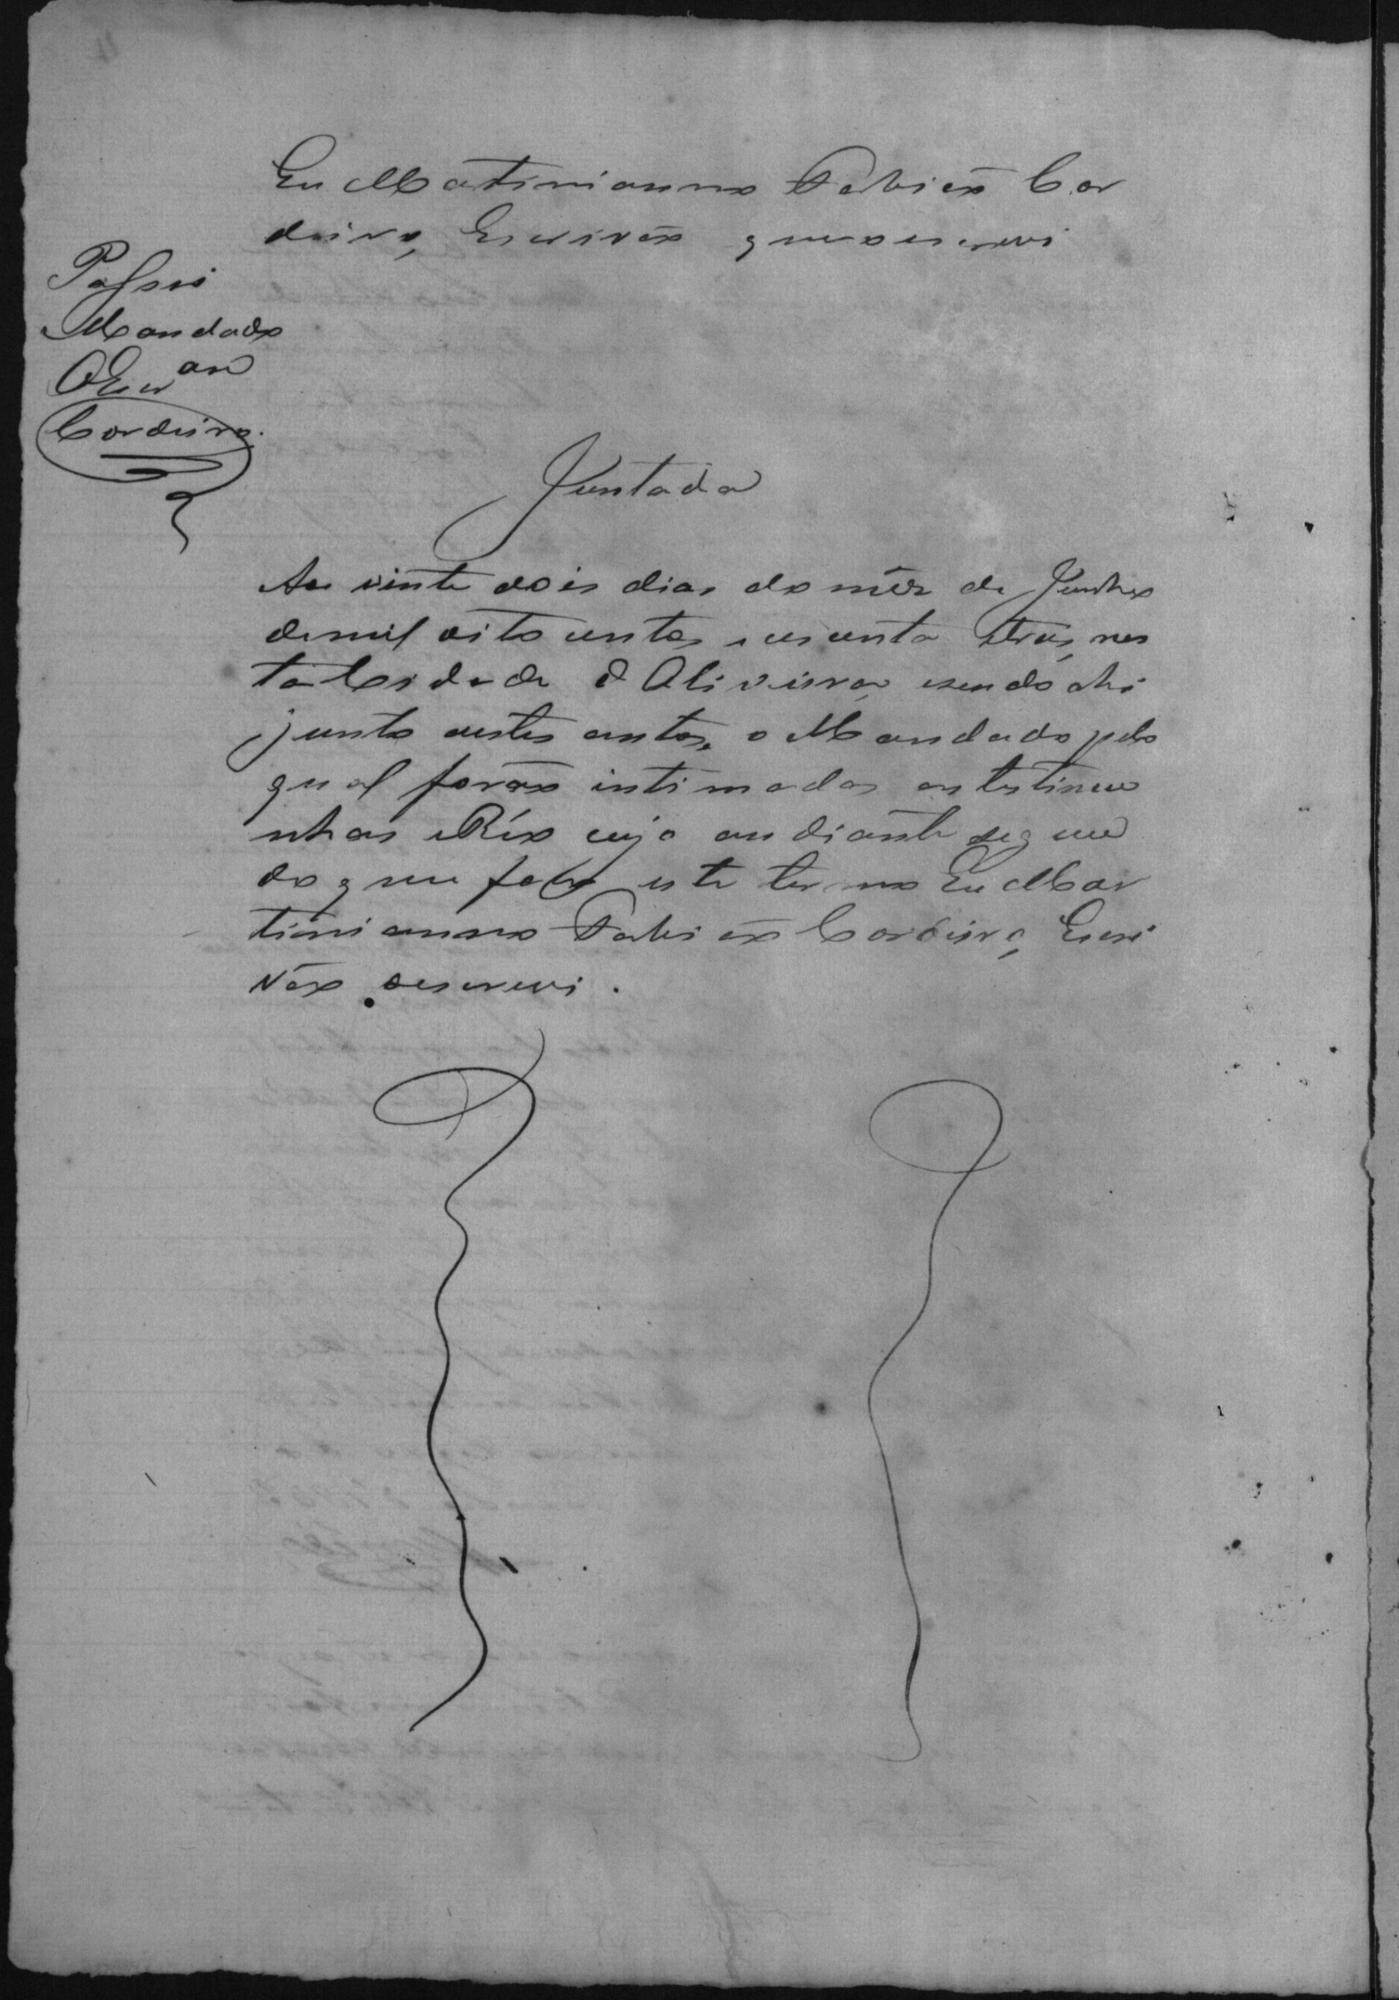 Eu Matinianno Fabião Cor
deiro, Escrivão que o escrevi
Passei
Mandado
O Escr.ão
Cordeiro.
Juntada
Aos vinte dois dias do mêz de Junho
de mil oito centos e noventa e trez, nes
ta Cidade d'Oliveira, e sendo ahi
junto a estes autos, o Mandado pelo
qual forão intimados as testimu
nhas e Réo cujo an diante segue
do que faço este termo Eu Mar
tinianno Fabião Cordeiro, Escri
vão o escrevi.